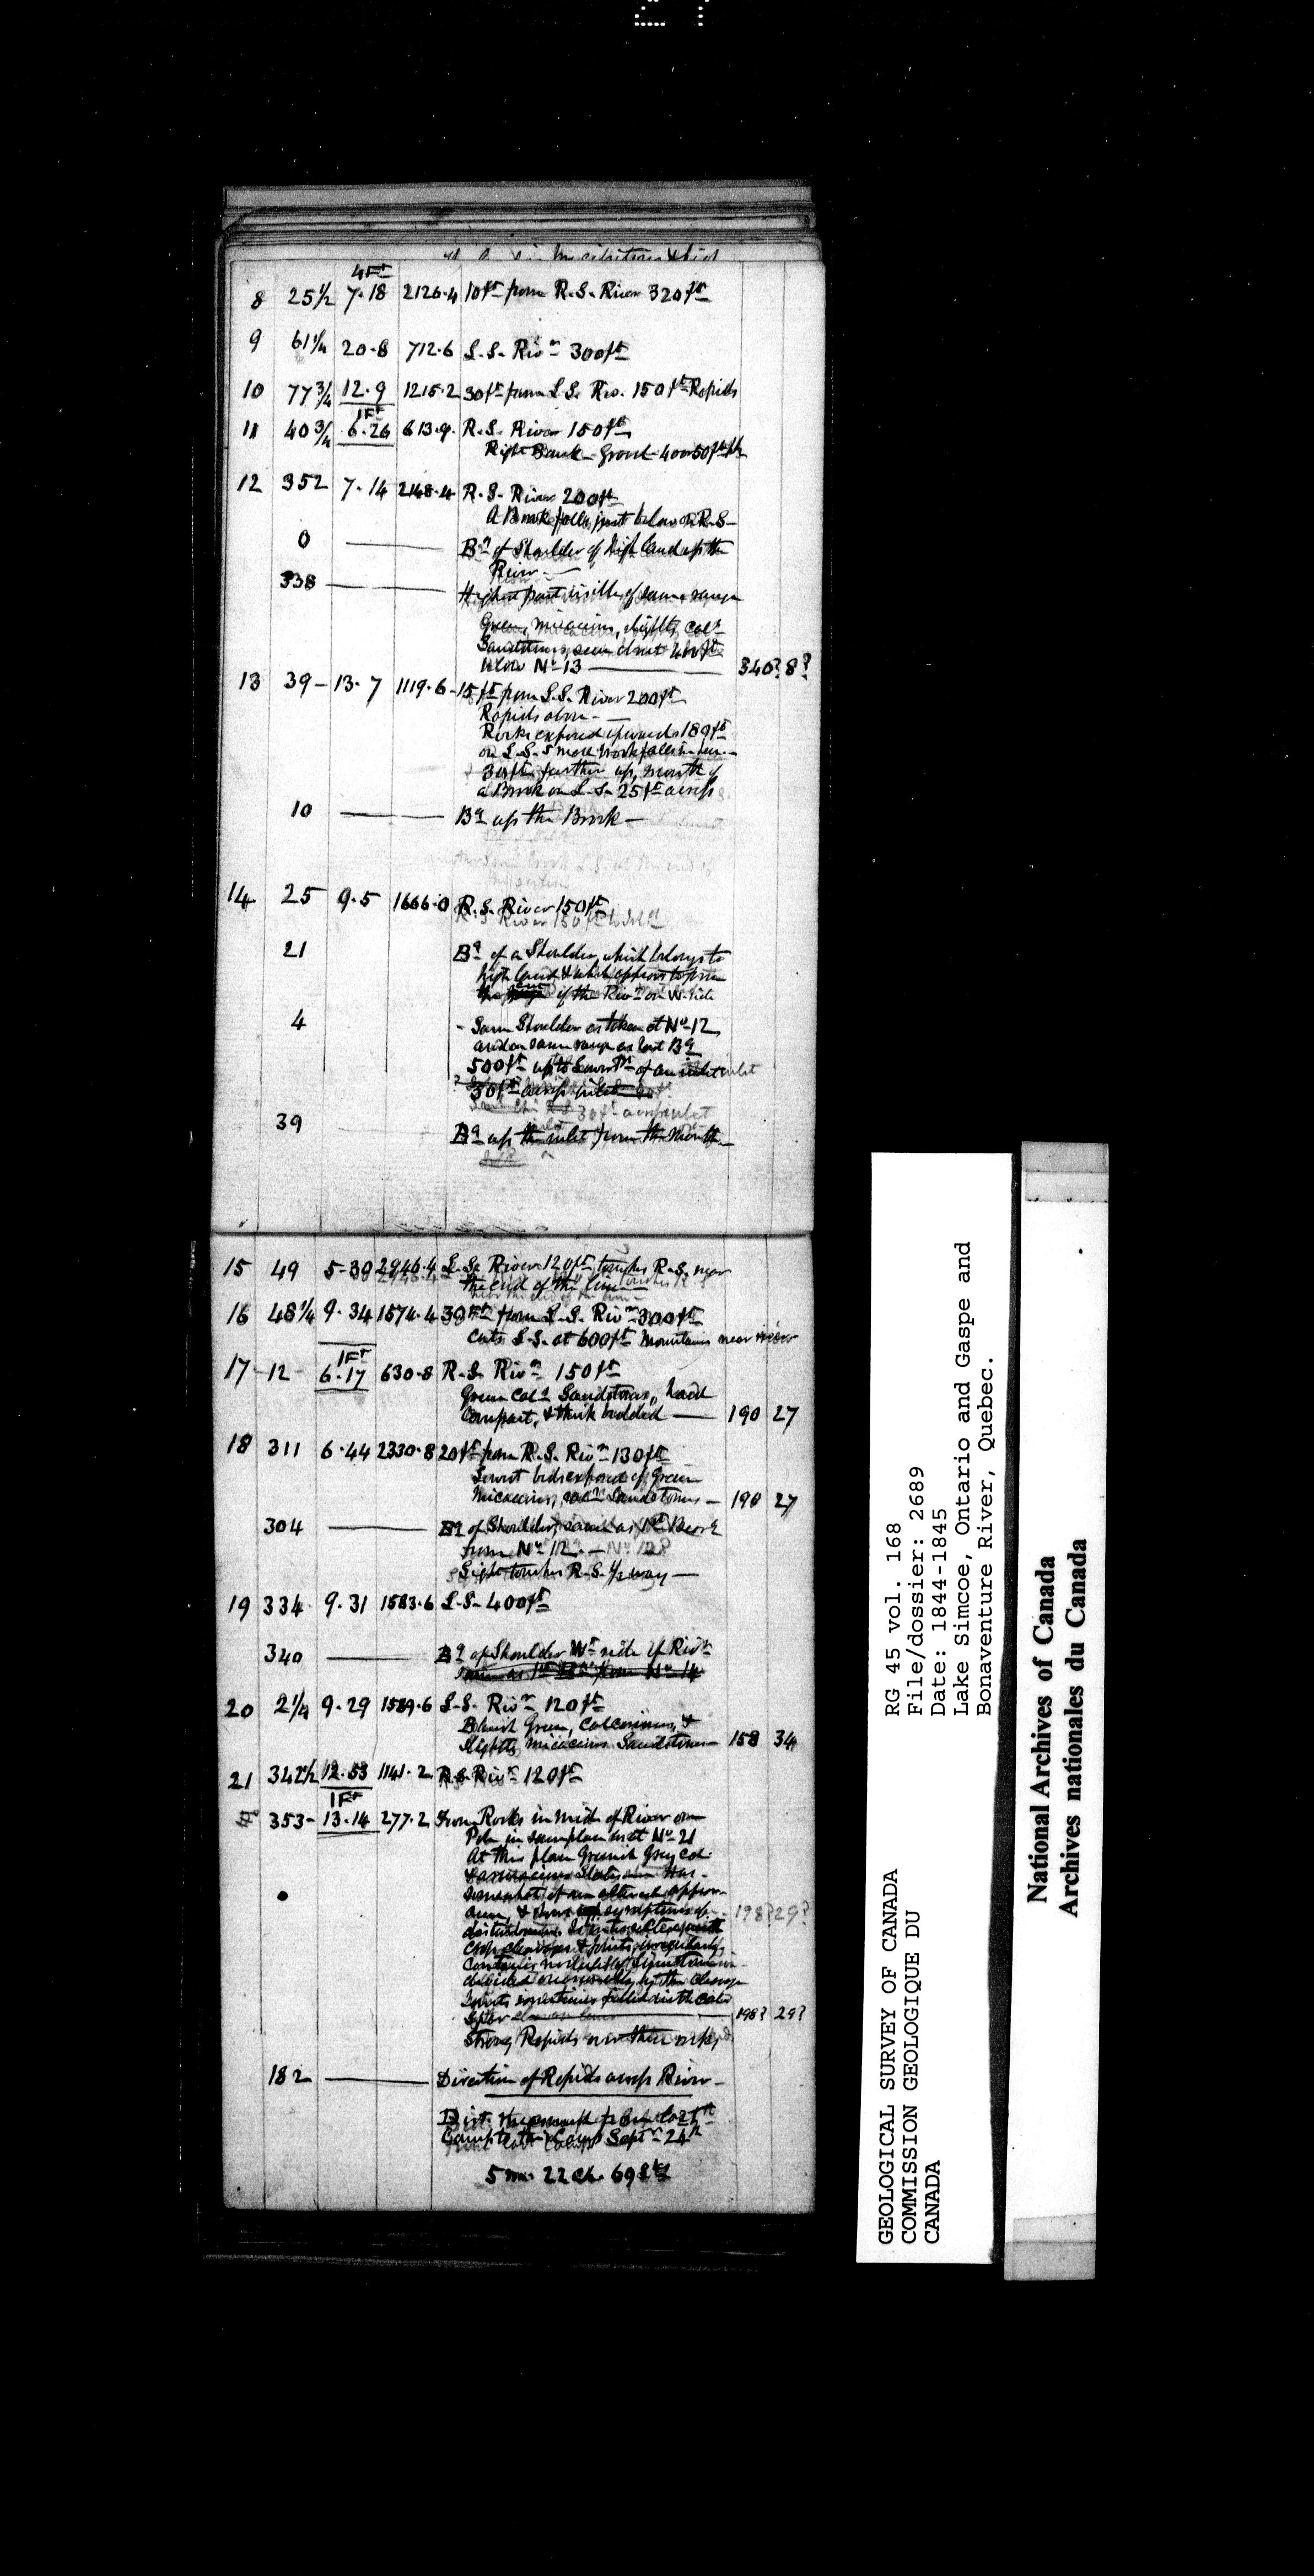 4Ft
8 25½ 7.18 2126.4 10ft from R.S. River 320ft
9 61¼ 20.8 712.6 L.S. Rivr 300ft
10 77¾ 12.9 1215.2 30ft from L.S. Riv. 150ft Rapids
1Ft
11 40¾ 6.26 613.9 R.S. River 150ft
Right Bank
12 352 7.14 2148.4 R.S. River 200ft
A Brook falls just below on R.S.
0 Bg of Shoulder of high land up the
River
338 Highest part visible of same range
Green, micaceous, slightly calc
Sandstones, seen about
below No 13 340? 8?
13 39 13.7 1119.6 15ft from L.S. River 200ft
Rapids above
Rocks exposed upwards 180ft
on L.S.
30ft further up, mouth of
a Brook on L.S. 25ft across
10 Bg up the Brook
14 25 9.5 1666.0 R.S. River 150ft
21 Bg of a Shoulder, which belongs to
high land & which appears to
of the Rivr on W. side
4 Same Shoulder as taken at No 12
and on same range as last Bg
500ft up to Lower of an inlet
30ft across inlet
39 Bg up the inlet from the mouth
15 49 5.30 2946.4 L.S. River 120ft touches R.S. near
the end of the line
16 48¼ 9.34 1574.4 30Ft from L.S. Rivr 300ft
Cuts L.S. at 600ft Mountains near river
1Ft
17 12 6.17 630.8 R.S. Rivr 150ft
Green Calc Sandstones, hard
Compact, & thick bedded 190 27
18 311 6.44 2330.8 20ft from R.S. Rivr 130ft
Lowest beds exposed of Green
Micaceous, calc Sandstones 190 27
304 Bg of Shoulder, same as 1st Bearg
from No 12
Sight touches R.S. ½ way
19 334 9.31 1583.6 L.S. 400ft
340 Bg of Shoulder Wt side of Rivr
same as 1st from No 14
20 2¼ 9.29 1589.6 L.S. Rivr 120ft
Bluish Green, Calcareous, &
slightly micaceous Sandstones 158 34
21 342½ 12.53 1141.2 R.S. Rivr 120ft
1Ft
353 13.14 277.2 From Rocks in mid of River
Pole in same place as at No 21
At this place Greenish Grey Col
somewhat of an altered appear-
ance, & symptoms of 198? 29?
disturbance
Cross cleavages & joints, irregularly
Contains nodules of limestone
divided occasionally by the cleavage
Joints sometimes filled with calc
Spar 198? 29?
Strong Rapids over these rocks
182 Direction of Rapids across River
Dist. measured from last
Camp to this Camp Septr 24th
5 m. 22 ch. 69 lks
GEOLOGICAL SURVEY OF CANADA
COMMISSION GEOLOGIQUE DU
CANADA
RG 45 vol. 168
File/dossier: 2689
Date: 1844-1845
Lake Simcoe, Ontario and Gaspe and
Bonaventure River, Quebec.
National Archives of Canada
Archives nationales du Canada